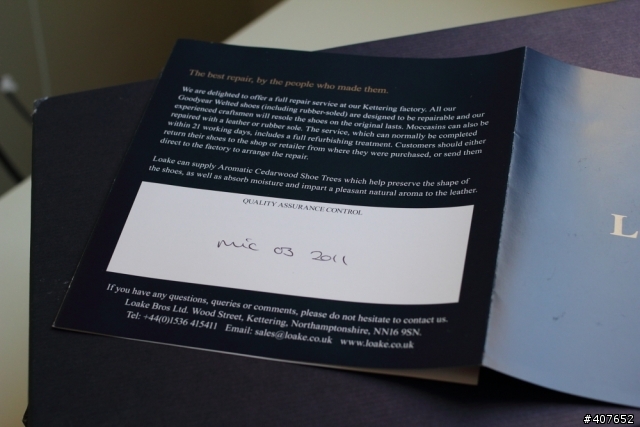 The best repair, by the people who made them.
We are delighted to offer a full repair service at our Kettering factory. All our
Goodyear Welted shoes (including rubber-soled) are designed to be repairable and our
experienced craftsmen will resole the shoes on the original lasts. Moccasins can also be
repaired with a leather or rubber sole. The service, which can normally be completed
within 21 working days, includes a full refurbishing treatment. Customers should either
return their shoes to the shop or retailer from where they were purchased, or send them
direct to the factory to arrange the repair.
Loake can supply Aromatic Cedarwood Shoe Trees which help preserve the shape of
the shoes, as well as absorb moisture and impart a pleasant natural aroma to the leather.
QUALITY ASSURANCE CONTROL
mic 03 2011
If you have any questions, queries or comments, please do not hesitate to contact us.
Loake Bros Ltd. Wood Street, Kettering, Northamptonshire, NN16 9SN.
Tel: +44(0)1536 415411 Email: sales@loake.co.uk www.loake.co.uk
L
#407652